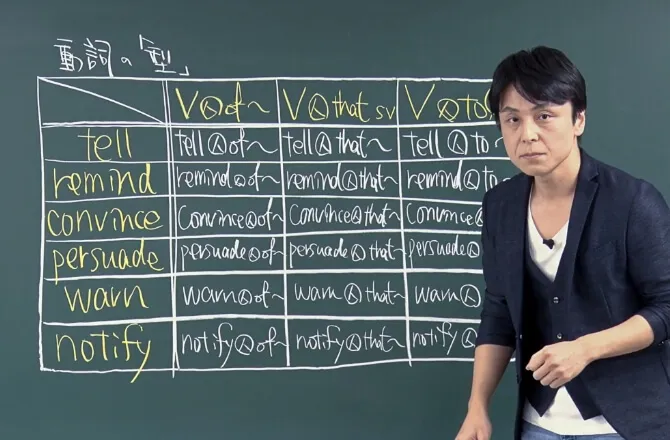 動詞の「型」
V Ⓐ of ～ V Ⓐ that sv V Ⓐ to
tell tell Ⓐ of ～ tell Ⓐ that ～ tell Ⓐ to ～
remind remind Ⓐ of ～ remind Ⓐ that ～ remind Ⓐ to
convince convince Ⓐ of ～ convince Ⓐ that ～ convince Ⓐ
persuade persuade Ⓐ of ～ persuade Ⓐ that ～ persuade Ⓐ
warn warn Ⓐ of ～ warn Ⓐ that ～ warn Ⓐ
notify notify Ⓐ of ～ notify Ⓐ that ～ notify Ⓐ